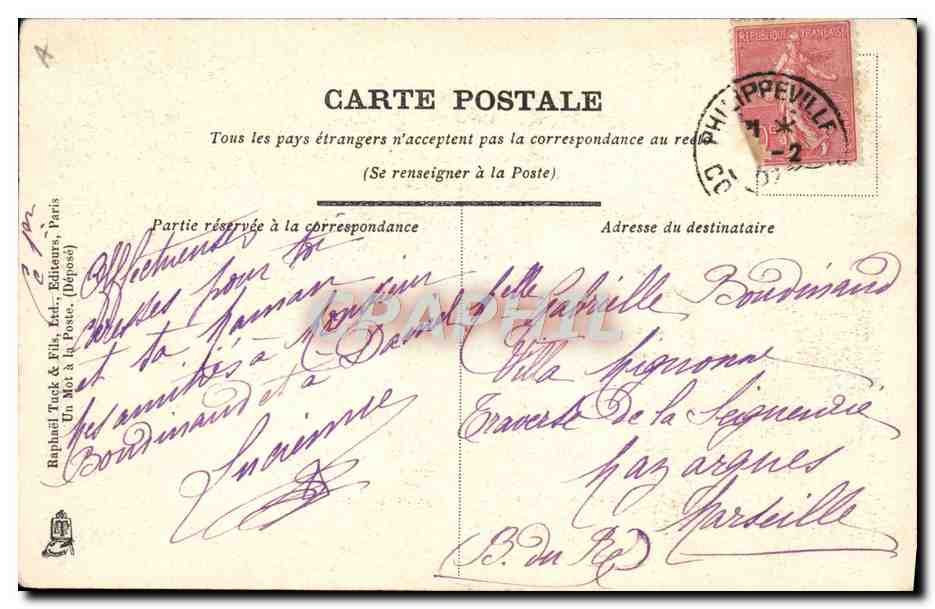 RÉPUBLIQUE FRANÇAISE
PHILIPPEVILLE
CARTE POSTALE
Tous les pays étrangers n'acceptent pas la correspondance au
(Se renseigner à la Poste)
Partie réservée à la correspondance
Affectueuses
caresses pour toi
et ta maman
mes amitiés à Monsieur
Boudinaud et à Daniel
Lucienne
Adresse du destinataire
Melle Gabrielle Boudinaud
Villa Mignonne
Traverse de la Seigneurie
Mazargues
Marseille
(B. du R.)
Raphaël Tuck & Fils, Ltd., Editeurs, Paris
Un Mot à la Poste. (Déposé)
CPAPHIL